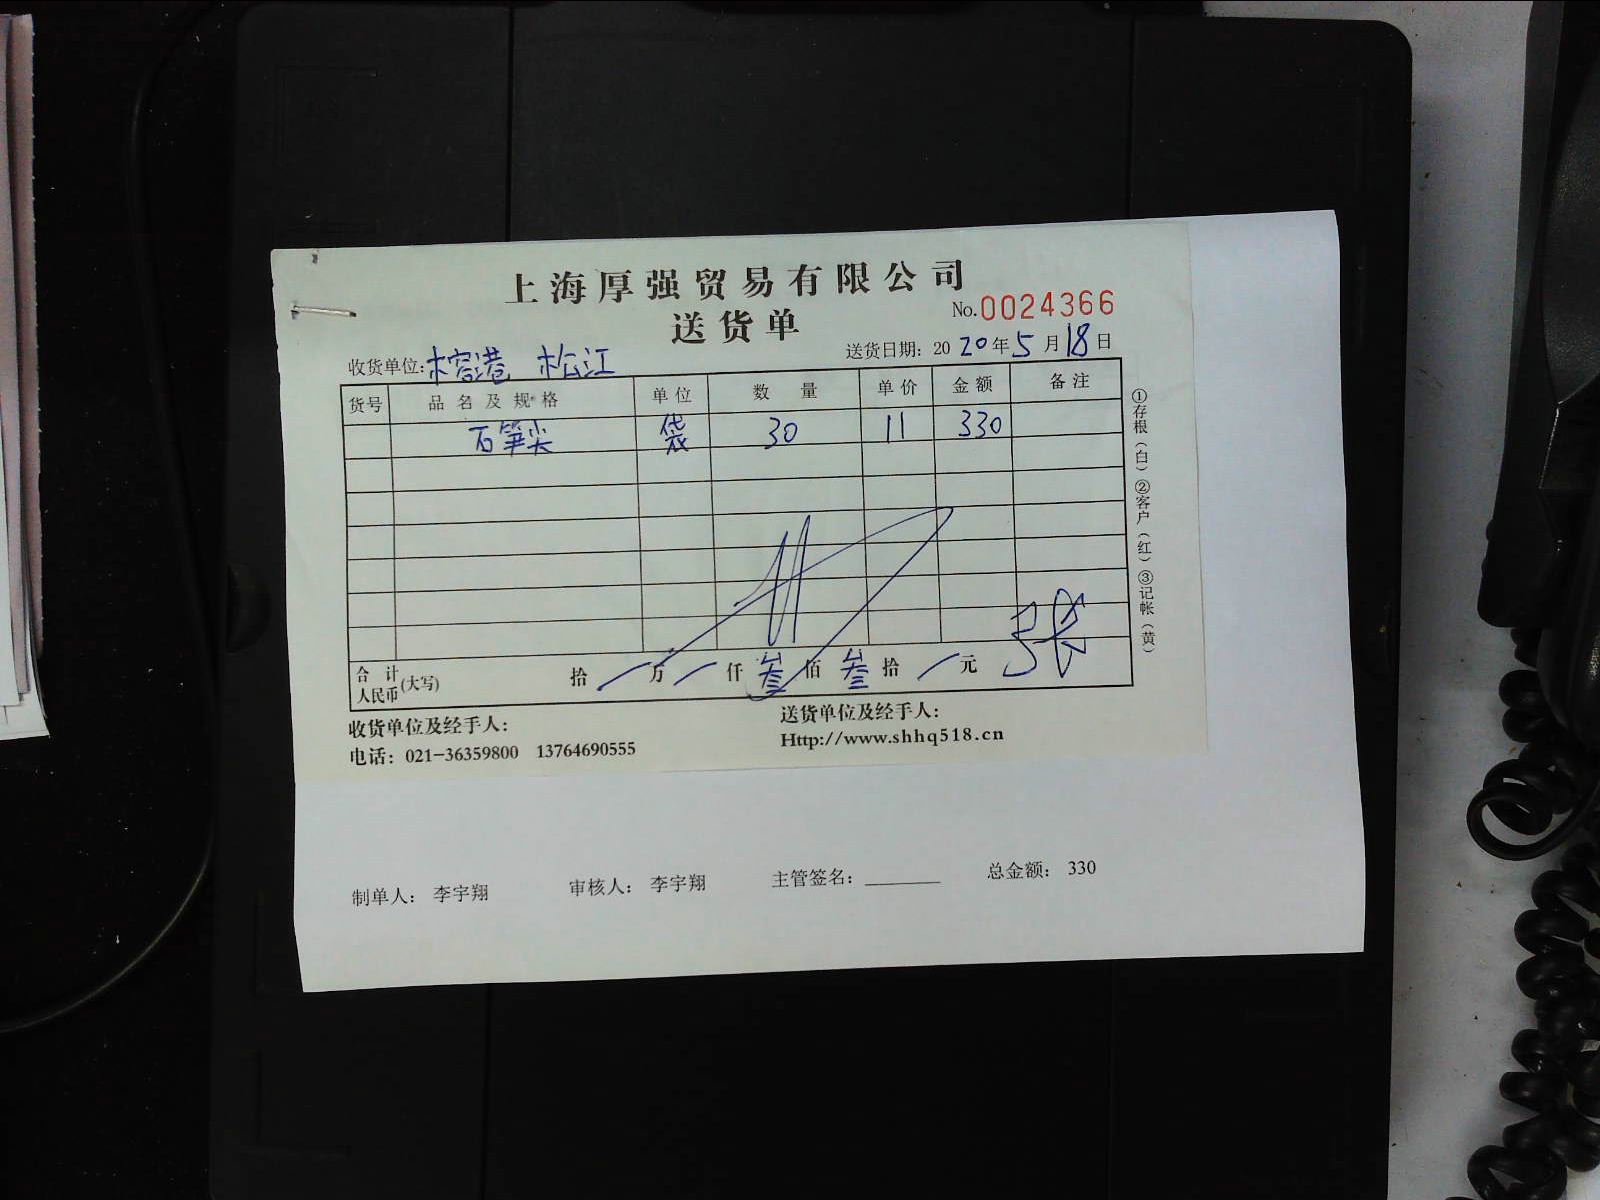 上海厚强贸易有限公司
送货单
No.0024366
收货单位:榕港 松江
送货日期: 2020年5月18日
货号 品名及规格 单位 数量 单价 金额 备注
石笋尖 袋 30 11 330
合计人民币(大写) 拾 万 仟 叁佰 叁拾 元
张
①存根(白)②客户(红)③记帐(黄)
收货单位及经手人:
送货单位及经手人:
电话: 021-36359800 13764690555
Http://www.shhq518.cn
制单人: 李宇翔 审核人: 李宇翔 主管签名: 总金额: 330